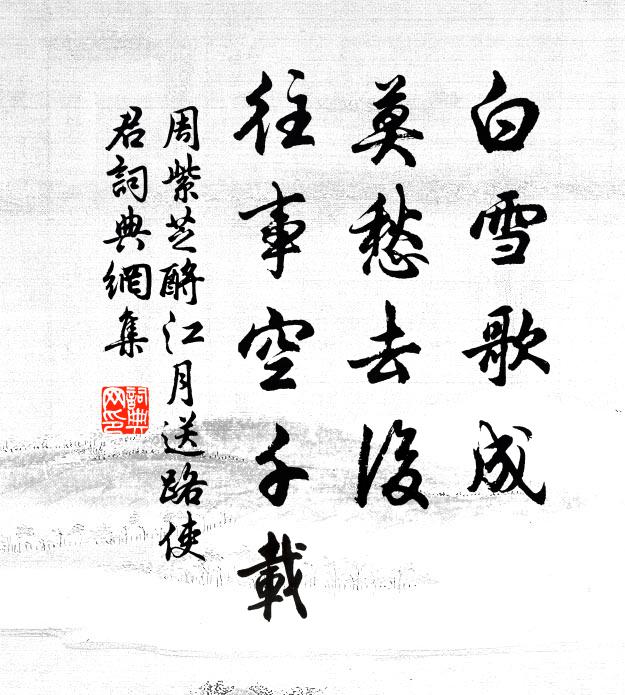 白雪歌成
莫愁去後
往事空千載
周紫芝酹江月送路使
君詞典網集
詞典
网印